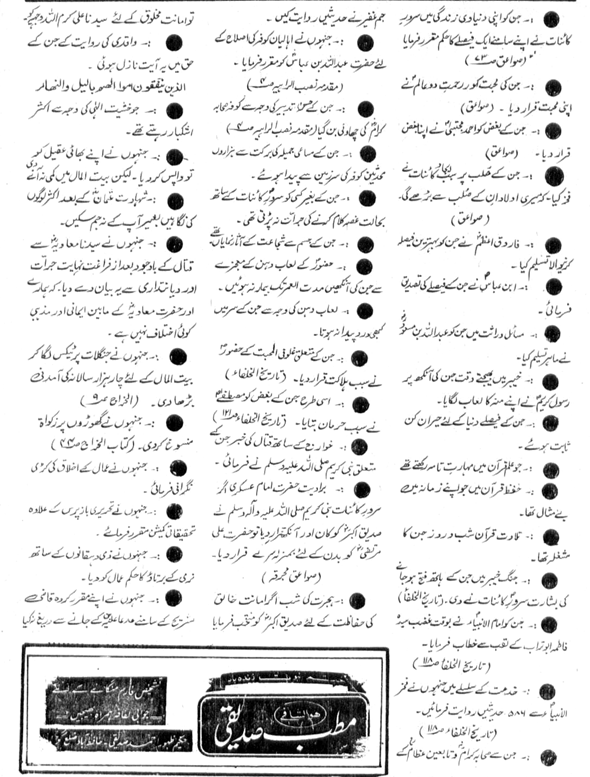 :۔ جن کو اپنی دنیاوی زندگی میں سرورِ
کائنات نے اپنے سامنے ایک فیصلے کا حکم مقرر فرمایا
(صواعق ص ۷۳)
:۔ جن کی محبت کو رحمتِ دو عالمؐ نے
اپنی محبت قرار دیا۔ (صواعق)
:۔ جن کے بغض کو احمد مجتبیٰؐ نے اپنا بغض
قرار دیا۔ (صواعق)
:۔ جن کے صُلب پر کائنات نے
فخر کیا۔ کہ میری اولاد ان کے صُلب سے بڑھے گی۔
(صواعق)
:۔ فاروق اعظمؓ نے جن کو بہترین فیصلہ
کرنیوالا تسلیم کیا۔
:۔ ابن عباسؓ نے جن کے فیصلے کی تصدیق
فرمائی۔
:۔ مسائل وراثت میں جن کو عبداللہ بن مسعودؓ
نے ماہر تسلیم کیا۔
:۔ خیبر میں بھیجتے وقت جن کی آنکھ پر
رسول کریمؐ نے اپنے منہ کا لعاب لگایا۔
:۔ جن کے فیصلے دنیا کے لئے حیران کن
ثابت ہوئے۔
:۔ جو علم قرآن میں مہارتِ تامہ رکھتے تھے
:۔ حفظِ قرآن میں جو اپنے زمانہ میں
بے مثال تھا۔
:۔ تلاوت قرآن شب و روز جن کا
مشغلہ تھا۔
:۔ جنگِ خیبر میں جن کے ہاتھ فتح ہو جانے
کی بشارت سرورِ کائنات نے دی۔ (تاریخ الخلفاء)
:۔ جن کو امام الانبیاءؐ نے بوقت غضب سیدہ
فاطمہ ابوتراب کے لقب سے خطاب فرمایا۔
(تاریخ الخلفاء ص ۱۱۸)
:۔ خدمت کے سلسلے میں جنہوں نے فخر
الانبیاءؐ سے ۵۸۶ حدیثیں روایت فرمائیں۔
(تاریخ الخلفاء ص ۱۱۸)
:۔ جن سے صحابہ کرامؓ و تابعین عظامؒ کے
جم غفیر نے حدیثیں روایت کیں۔
:۔ جنہوں نے اہالیان کوفہ کی اصلاح کے
لئے حضرت عبداللہ بن عباسؓ کو مقرر فرمایا۔
(مقدمہ نصب الرایہ)
:۔ جن کے تدبیر کی وجہ سے کوفہ صحابہ
کرامؓ کی چھاؤنی بن گیا (مقدمہ نصب الرایہ)
:۔ جن کے مساعی جمیلہ کی برکت سے ہزاروں
محدثین کوفہ کی سرزمین سے پیدا ہوئے۔
:۔ جن کے بغیر کسی کو سرورِ کائنات کے ساتھ
بحالت غصہ کلام کرنے کی جرات نہ پڑتی تھی۔
:۔ جن کے جسم سے شجاعت کے آثار نمایاں تھے
:۔ حضورؐ کے لعاب دہن کے معجزے
سے جن کی آنکھیں مدت العمر تک بیمار نہ ہوئیں۔
:۔ لعاب دہن کی وجہ سے جن کے سر میں
کبھی درد پیدا نہ ہوتا۔
:۔ جن کے متعلق غلو فی المحبت کے حضورؐ
نے سبب ہلاکت قرار دیا۔ (تاریخ الخلفاء)
:۔ اسی طرح جن کے بغض کو مصطفیٰؐ
نے سبب حرمان بتایا۔ (تاریخ الخلفاء ص ۱۲۱)
:۔ خوارج کے ساتھ قتال کی خبر جن کے
متعلق نبی کریم صلی اللہ علیہ وسلم نے فرمائی۔
:۔ بروایت حضرت امام عسکری اگر
سرورِ کائنات نبی کریم صلی اللہ علیہ وآلہ وسلم نے
صدیق اکبرؓ کو کان اور آنکھ قرار دیا تو حضرت علی
مرتضیٰؓ کو بدن کے لئے بمنزلہ سر کے قرار دیا۔
(صواعق محرقہ)
:۔ ہجرت کی شب اگر امانت خالق
کی حفاظت کے لئے صدیق اکبرؓ کو منتخب فرمایا
تو امانت مخلوق کے لئے سیدنا علی کرم اللہ وجہہٗ کو
:۔ واقدی کی روایت کے جن کے
حق میں یہ آیت نازل ہوئی۔
الذین ینفقون اموالھم بالیل والنھار
:۔ جو خشیت الٰہی کی وجہ سے اکثر
اشکبار رہتے تھے۔
:۔ جنہوں نے اپنے بھائی عقیل کو
تو واپس کر دیا۔ لیکن بیت المال میں کمی نہ آنے دی
:۔ شہادت عثمانؓ کے بعد اکثر لوگوں
کی نگاہیں بغیر آپ کے نہ جم سکیں۔
:۔ جنہوں نے سیدنا معاویہؓ سے
قتال کے باوجود بعد از فراغت نہایت جرات
اور دیانتداری سے یہ بیان دے دیا۔ کہ ہمارے
اور حضرت معاویہؓ کے مابین ایمانی اور مذہبی
کوئی اختلاف نہیں ہے۔
:۔ جنہوں نے جنگلات پر ٹیکس لگا کر
بیت المال کے لئے چار ہزار سالانہ کی آمدنی
بڑھا دی۔ (الخراج ص ۹)
:۔ جنہوں نے گھوڑوں پر زکواۃ
منسوخ کر دی۔ (کتاب الخراج ص ۴۴)
:۔ جنہوں نے عمال کے اخلاق کی کڑی
نگرانی فرمائی۔
:۔ جنہوں نے تحریری بازپرس کے علاوہ
تحقیقاتی کمیشن مقرر فرمائے۔
:۔ جنہوں نے ذمی دہقانوں کے ساتھ
نرمی کے برتاؤ کا حکم عمال کو دیا۔
:۔ جنہوں نے اپنے مقرر کردہ قاضی
شریح کے سامنے مدعا علیہ کے جانے سے دریغ نہ کیا
ھوالشافی
مطب صدیقی